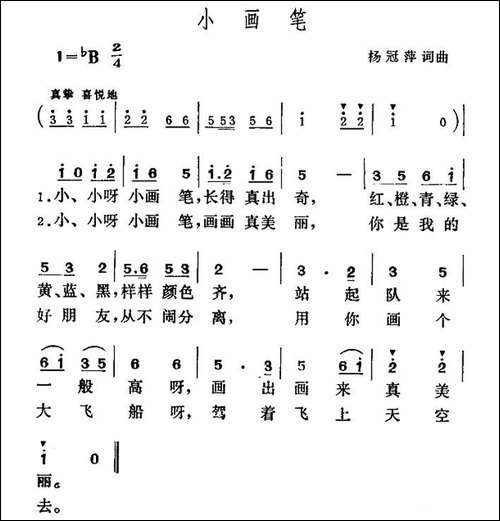 小画笔
1=♭B 2/4 杨冠萍 词曲
真挚 喜悦地
(3 3 i i | 2 2 6 6 | 5 5 3 5 5 | 5 i 2 2 | 2 i 0)
i 0 i 2 | i 6 5 | i. 2 i 6 | 5 — | 3 5 6 i |
1.小、小呀 小画 笔,长得 真出 奇, 红、橙、青、绿、
2.小、小呀 小画 笔,画画 真美 丽, 你是我的
5 3 2 | 5. 6 5 3 | 2 — | 3 · 2 | 3 5 |
黄、蓝、黑,样样 颜色 齐, 站 起 队 来
好朋 友,从不 闹分 离, 用 你 画 个
6 i 3 5 | 6 6 | 5 · 3 | 5 6 i | 2 2 |
一 般 高 呀, 画 出 画 来 真 美
大 飞 船 呀, 驾 着 飞 上 天 空
i 0 ‖
丽。
去。